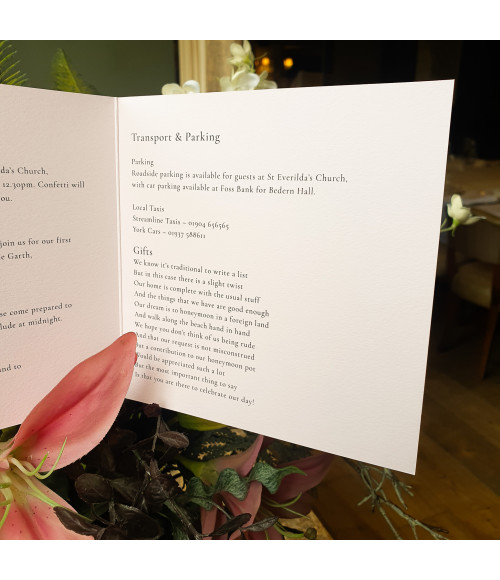 da's Church,
12.30pm. Confetti will
ou.
join us for our first
e Garth,
se come prepared to
lude at midnight.
and to
Transport & Parking
Parking
Roadside parking is available for guests at St Everilda's Church,
with car parking available at Foss Bank for Bedern Hall.
Local Taxis
Streamline Taxis – 01904 656565
York Cars – 01937 588611
Gifts
We know it's traditional to write a list
But in this case there is a slight twist
Our home is complete with the usual stuff
And the things that we have are good enough
Our dream is to honeymoon in a foreign land
And walk along the beach hand in hand
We hope you don't think of us being rude
And that our request is not misconstrued
But a contribution to our honeymoon pot
Would be appreciated such a lot
But the most important thing to say
Is that you are there to celebrate our day!